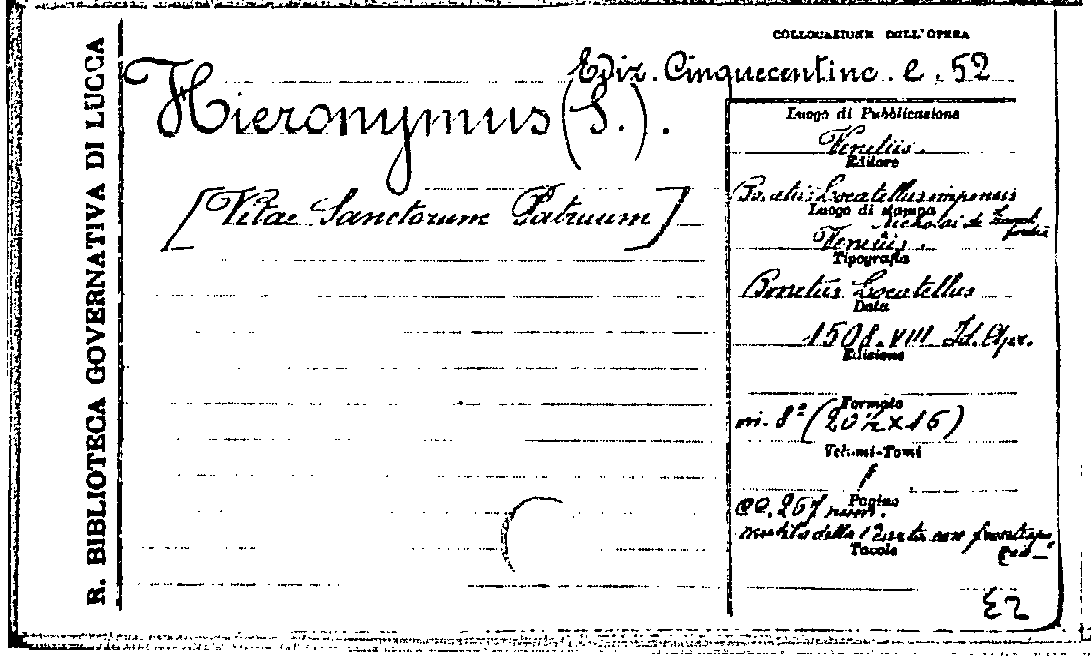 R. BIBLIOTECA GOVERNATIVA DI LUCCA
COLLOCAZIONE DELL'OPERA
Ediz. Cinquecentine. e. 52
Hieronymus (S.).
[Vitae Sanctorum Patruum]
Luogo di Pubblicazione
Venetiis.
Editore
Bonetus Locatellus impensis
Luogo di stampa
Nicholai de
Venetiis.
Tipografia
Bonetus Locatellus
Data
1508. VIII Id. Apr.
Edizione
Formato
in. 8º (20½ x 16)
Volumi-Tomi
1
Pagine
cc. 267 num.
mutilo della 1
Tavole